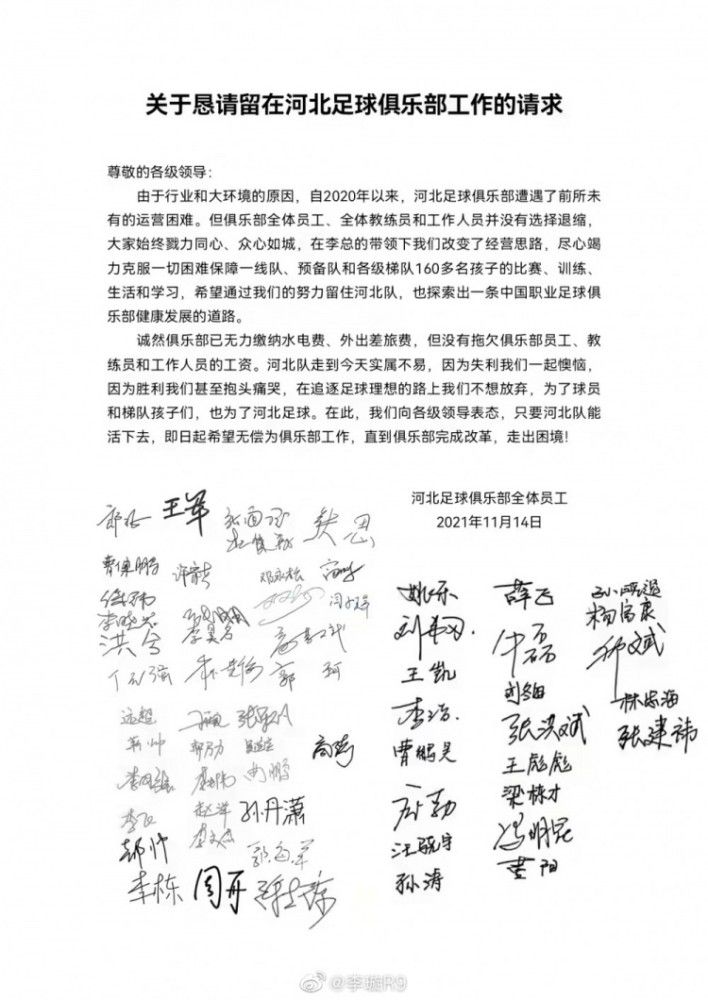 关于恳请留在河北足球俱乐部工作的请求
尊敬的各级领导：
由于行业和大环境的原因，自2020年以来，河北足球俱乐部遭遇了前所未
有的运营困难。但俱乐部全体员工、全体教练员和工作人员并没有选择退缩，
大家始终戮力同心、众心如城，在李总的带领下我们改变了经营思路，尽心竭
力克服一切困难保障一线队、预备队和各级梯队160多名孩子的比赛、训练、
生活和学习，希望通过我们的努力留住河北队，也探索出一条中国职业足球俱
乐部健康发展的道路。
诚然俱乐部已无力缴纳水电费、外出差旅费，但没有拖欠俱乐部员工、教
练员和工作人员的工资。河北队走到今天实属不易，因为失利我们一起懊恼，
因为胜利我们甚至抱头痛哭，在追逐足球理想的路上我们不想放弃，为了球员
和梯队孩子们，也为了河北足球。在此，我们向各级领导表态，只要河北队能
活下去，即日起希望无偿为俱乐部工作，直到俱乐部完成改革，走出困境！
河北足球俱乐部全体员工
2021年11月14日
王军
姚乐
薛飞
杨富康
王凯
牛磊
李浩
林宏海
曹鹏昊
张洪斌
张建祎
王彪彪
梁栋才
汪晓宇
冯明昆
孙涛
黄阳
远超
高奇
孙丹潇
郝帅
李栋
周开
@李璇R9